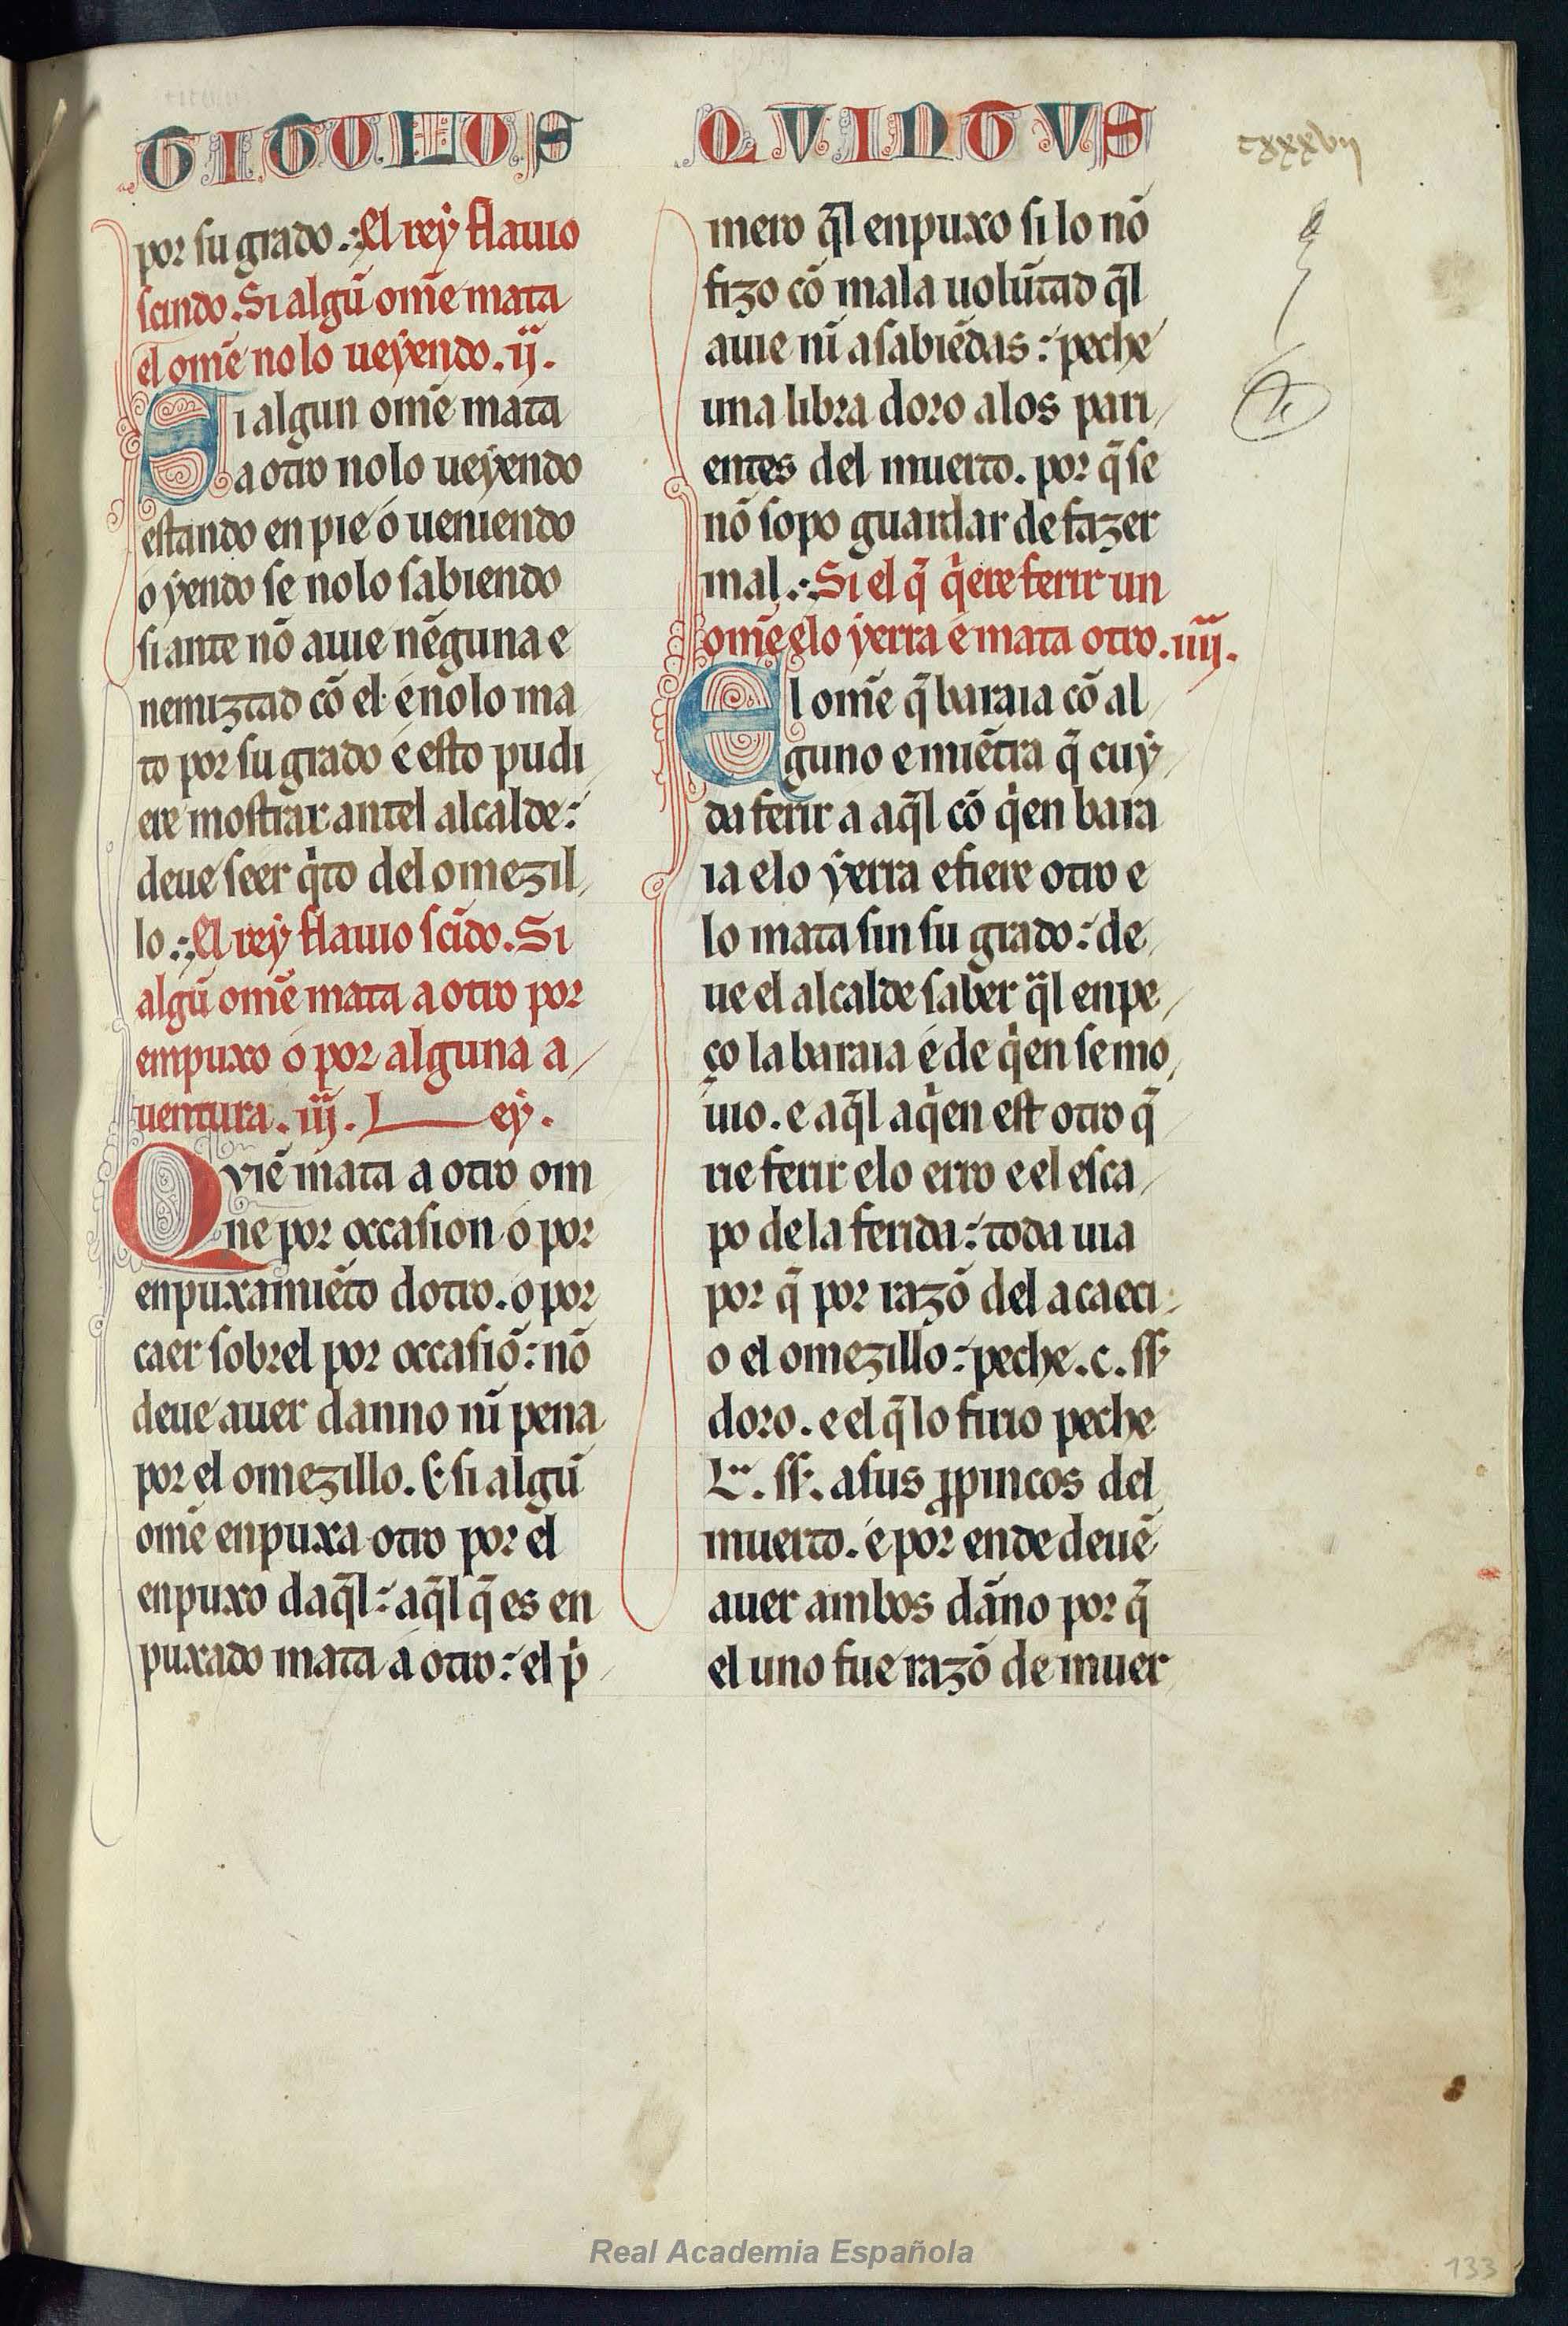 TITULUS QVINTVS
cxxxvij
por su grado .:. El rey flauio
scindo. Si algũ om̃e mata
el om̃e no lo ueyendo. ij.
Si algun om̃e mata
a otro no lo ueyendo
estando en pie o ueniendo
o yendo se no lo sabiendo
si ante nõ auie nẽguna e
nemiztad cõ el. e ñolo ma
to por su grado e esto pudi
ere mostrar antel alcalde:
deue seer q̇to del omezil
lo .:. El rey flauio scĩdo. Si
algũ om̃e mata a otro por
empuxo o por alguna a
uentura. iij. Ley.
Qviẽ mata a otro om
ne por occasion o por
enpuxamiẽto dotro. o por
caer sobrel por occasiõ: nõ
deue auer danno nĩ pena
por el omezillo. E si algũ
om̃e enpuxa otro por el
enpuxo daq̃l: aq̃l q̃ es en
puxado mata a otro: el ṗ
mero q̃l enpuxo si lo nõ
fizo cõ mala uolũtad q̃l
auie nĩ a sabiẽdas: peche
una libra doro a los pari
entes del muerto. por q̃ se
nõ sopo guardar de fazer
mal .:. Si el q̃ q̇ere ferir un
om̃e elo yerra e mata otro. iiij.
El om̃e q̃ baraia cõ al
guno e miẽtra q̃ cuy
da ferir a aq̃l cõ q̇en bara
ia elo yerra e fiere otro e
lo mata sin su grado: de
ue el alcalde saber q̃l enpe
ço la baraia e de q̇en se mo
uio. e aq̃l aq̇en est otro q̃
rie ferir elo erro e el esca
po de la ferida: toda uia
por q̃ por razõ del acaeci
o el omezillo: peche. c. ss
doro. e el q̃ lo firio peche
L. ss. a sus ꝓpincos del
muerto. e por ende deuẽ
auer ambos dãno por q̃
el uno fue razõ de muer
Real Academia Española
133